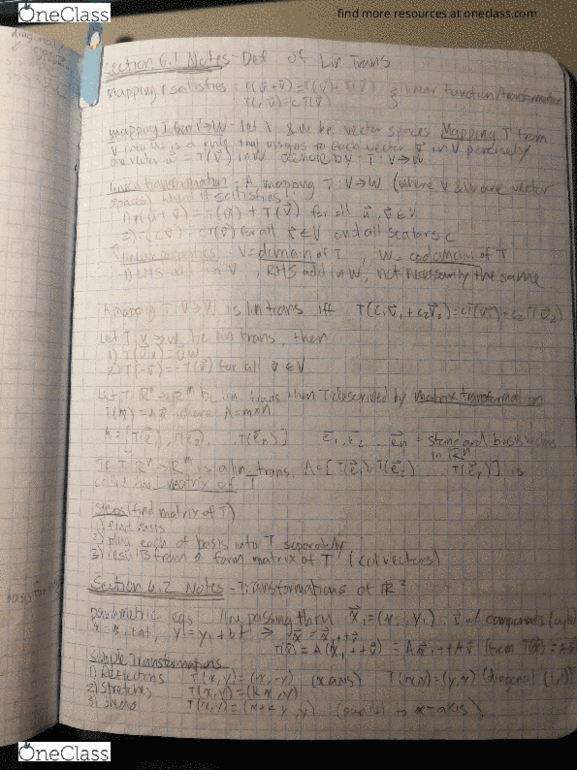 OneClass
find more resources at oneclass.com
Section 6.1 Notes - Def of Lin Trans
mapping T satisfies : T(u⃗+v⃗) = T(u⃗) + T(v⃗) } linear function/transformation
T(cv⃗) = cT(v⃗)
mapping T from V→W - let V & W be vector spaces. Mapping T from
V into W is a rule that assigns to each vector v⃗ in V precisely
one vector w⃗ = T(v⃗) in W denoted by T: V→W
linear transformation - A mapping T: V→W (where V & W are vector
spaces) if satisfies
1) T(u⃗+v⃗) = T(u⃗) + T(v⃗) for all u⃗, v⃗ ∈ V
2) T(cv⃗) = cT(v⃗) for all v⃗ ∈ V and all scalars c
linear properties V = domain of T , W = codomain of T
1) LHS add in V , RHS add in W, not necessarily the same
A mapping T: V→W is lin trans iff T(c₁v⃗₁ + c₂v⃗₂) = c₁T(v⃗₁) + c₂T(v⃗₂)
Let T: V→W be lin trans, then
1) T(0v) = 0w
2) T(-v⃗) = -T(v⃗) for all v⃗ ∈ V
Let T: Rⁿ→Rᵐ be lin trans then T described by matrix transformation
T(x⃗) = Ax⃗ where A = m×n
A = [T(e⃗₁), T(e⃗₂), ... T(e⃗n)] e⃗₁, e⃗₂ ... e⃗n = standard basis vectors
in Rⁿ
If T: Rⁿ→Rᵐ is a lin trans, A = [T(e⃗₁) T(e⃗₂) ... T(e⃗n)] is
called the matrix of T
Steps (find matrix of T)
1) find basis
2) plug each of basis into T separately
3) results from 2 form matrix of T (col vectors)
Section 6.2 Notes - Transformations of R²
parametric eqs line passing thru x⃗₁ = (x₁, y₁) v⃗ w/ components (a,b)
x = x₁ + at, y = y₁ + bt ⇒ x⃗ = x⃗₁ + tv⃗
T(x⃗) = A(x⃗₁ + tv⃗) = Ax⃗₁ + tAv⃗ (from T(x⃗) = Ax⃗
Simple Transformations
1) Reflections T(x,y) = (x,-y) (x axis) T(x,y) = (y,x) (diagonal (1,1))
2) stretches T(x,y) = (kx, y)
3) shears T(x,y) = (x+ky, y) (parallel to x-axis)
OneClass